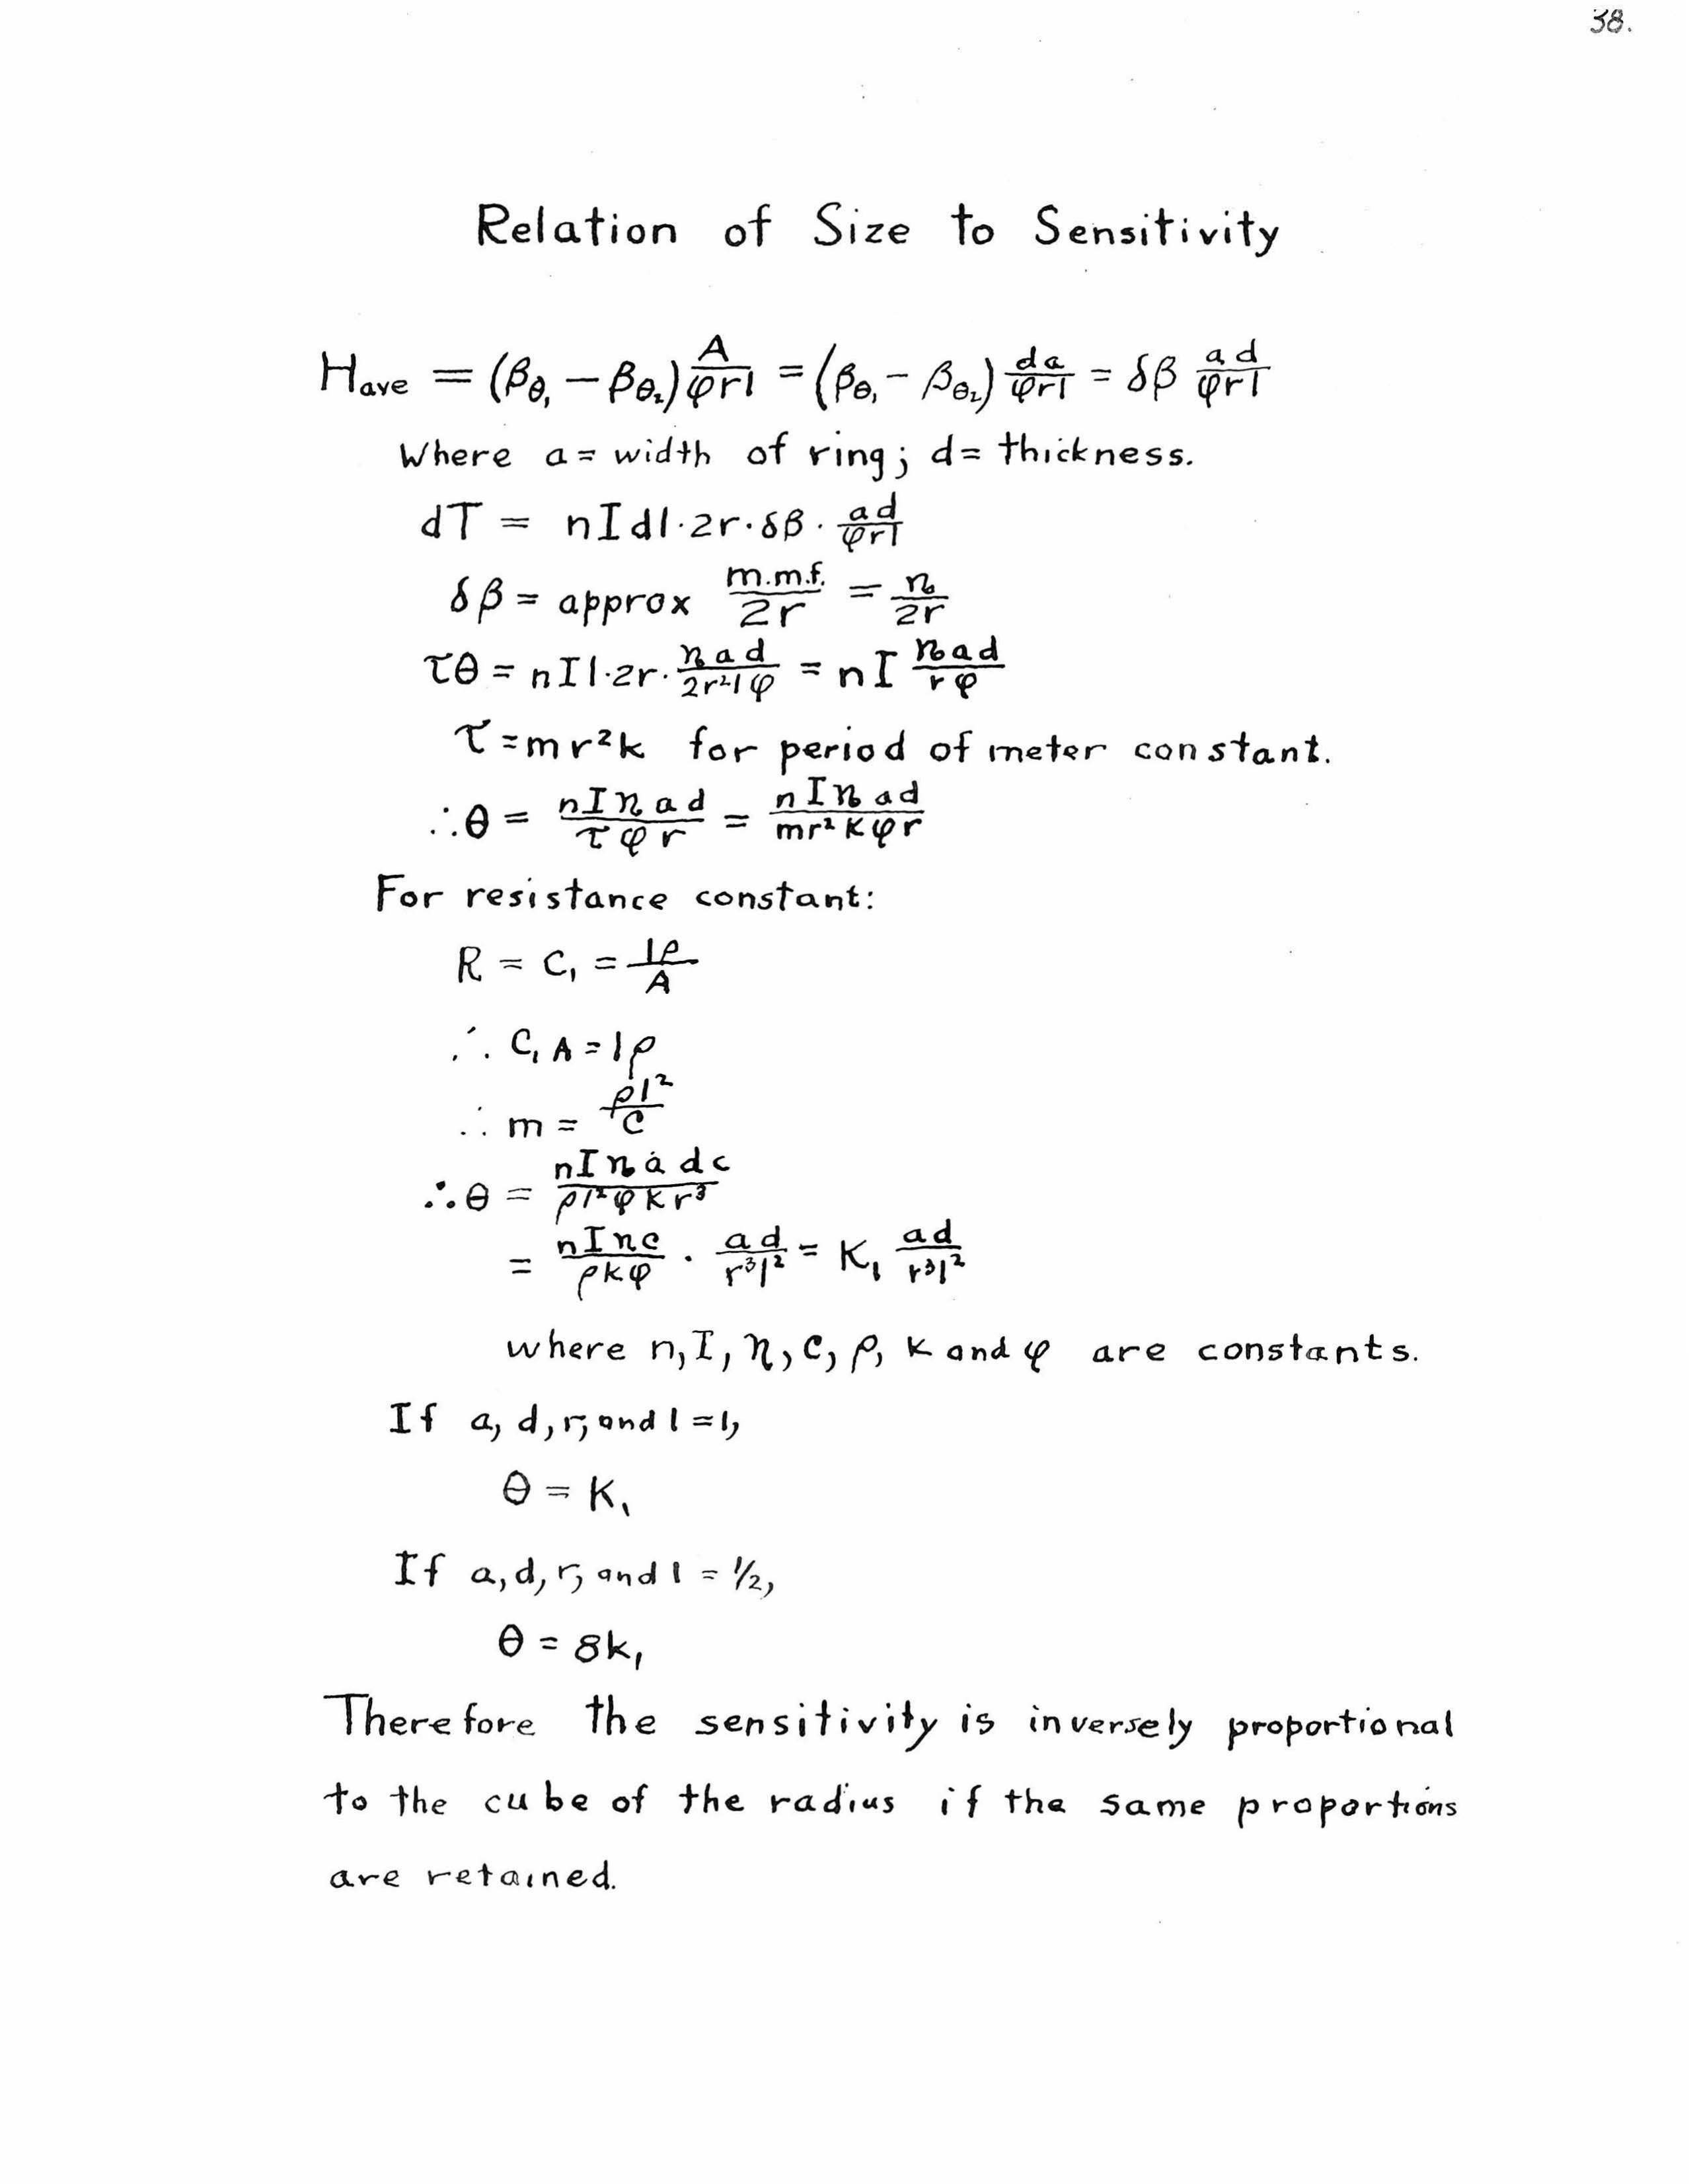 38.
Relation of Size to Sensitivity
Have = (βθ₁ − βθ₂) A/φrl = (βθ₁ − βθ₂) da/φrl = δβ ad/φrl
Where a = width of ring; d = thickness.
dT = nIdl·2r·δβ· ad/φrl
δβ = approx m.m.f./2r = η/2r
τθ = nIl·2r· ηad/2r²lφ = nI ηad/rφ
τ = mr²k for period of meter constant.
∴θ = nIηad/τφr = nIηad/mr²kφr
For resistance constant:
R = C₁ = lρ/A
∴ C₁A = lρ
∴ m = ρl²/C
∴θ = nIηadc/ρl²φkr³
= nIηc/ρkφ · ad/r³l² = K₁ ad/r³l²
where n, I, η, c, ρ, k and φ are constants.
If a, d, r, and l = 1,
θ = K₁
If a, d, r, and l = 1/2,
θ = 8k₁
Therefore the sensitivity is inversely proportional
to the cube of the radius if the same proportions
are retained.